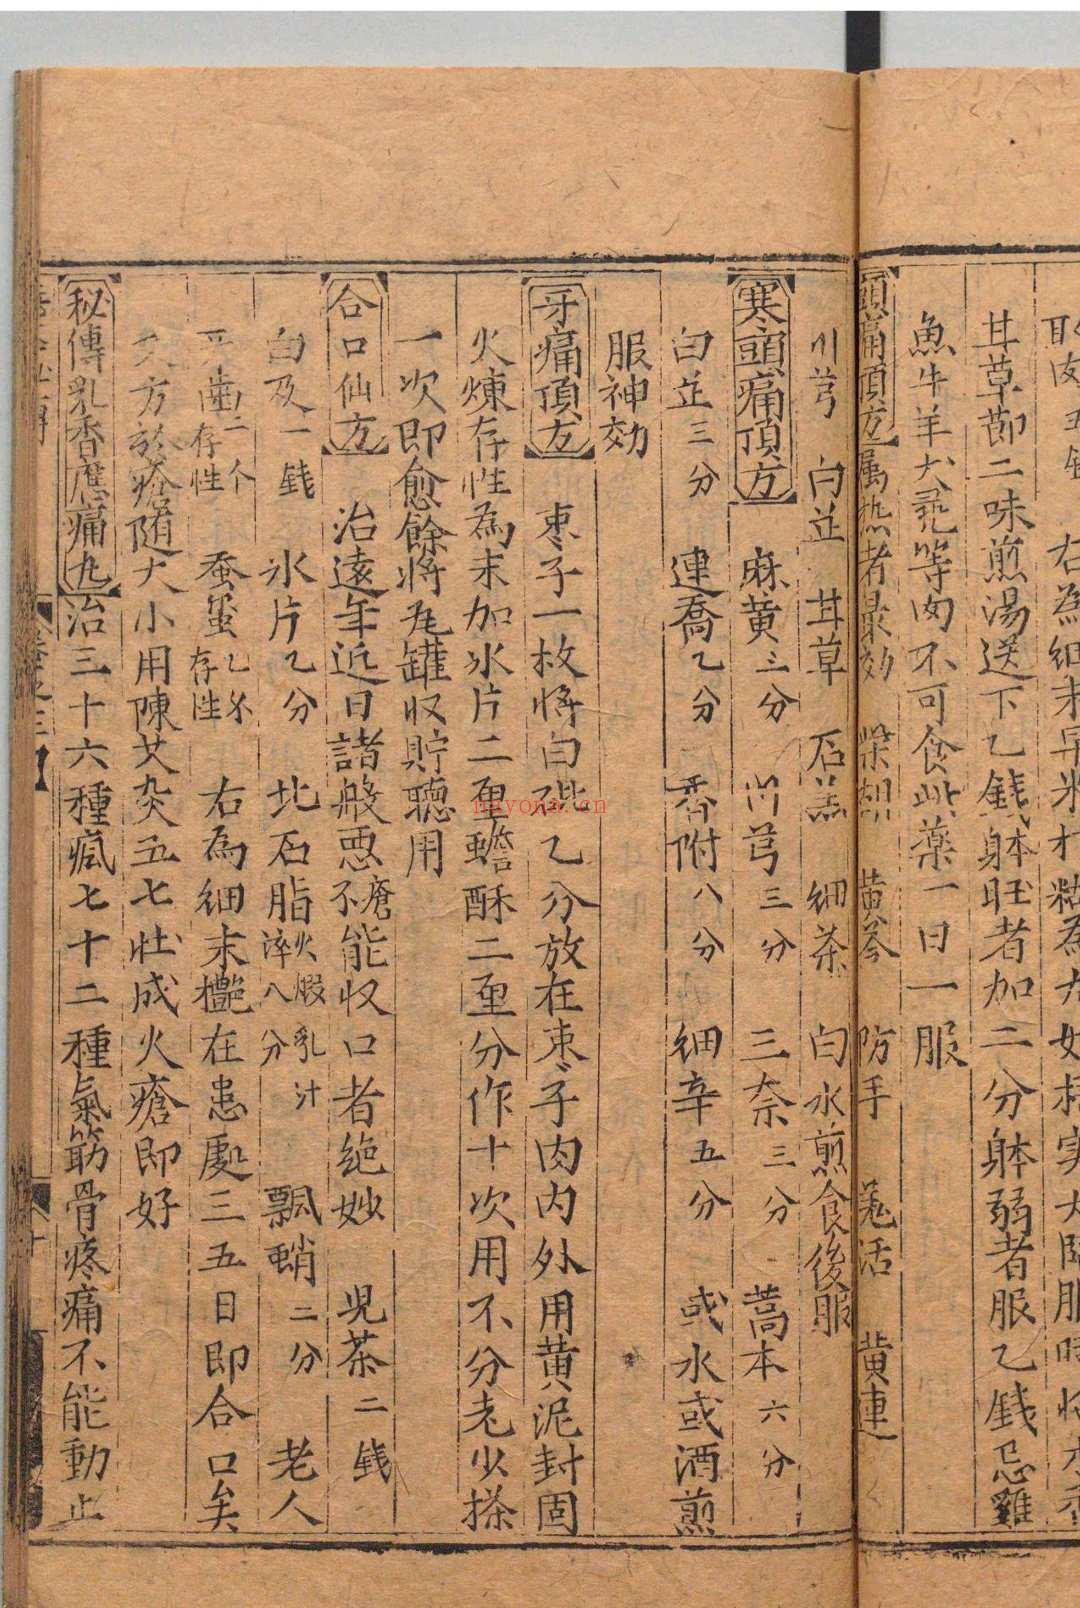 右為細末
甘草節二味煎湯送下乙錢躰旺者加二分躰弱者服乙錢忌雞
魚牛羊犬兎等肉不可食此藥一日一服
頭痛頂方 属热者最効 柴胡 黄芩 防手 羗活 黄連
川芎 白芷 甘草 石羔 细茶 白水煎食後服
寒頭痛頂方 麻黄三分 川芎三分 三奈三分 蒿本六分
白芷三分 連喬乙分 香附八分 细辛五分 或水或酒煎
服神効
牙痛頂方 枣子一枚将白砒乙分放在枣子肉内外用黄泥封固
火煉存性為末加氷片二厘蟾酥二厘分作十次用不分老少搽
一次即愈餘将瓦罐収貯聽用
合口仙方 治遠年近日諸般悪瘡不能収口者绝妙 児茶二钱
白及一钱 氷片乙分 北石脂火煆乳汁淬八分 飘蛸二分 老人
牙齒二个存性 蚕蛋乙尔存性 右為细末 在患處三五日即合口矣
方於瘡随大小用陳艾灸五七壮成火瘡即好
秘傳乳香應痛丸 治三十六種瘋七十二種氣筋骨疼痛不能動止
nayona.cn